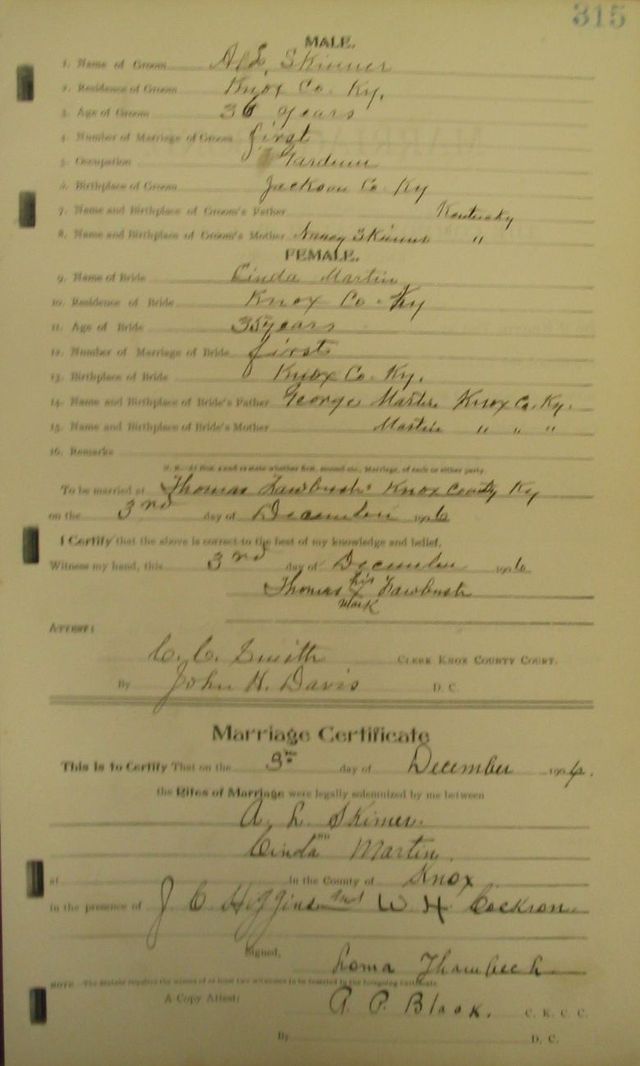 315
MALE.
1. Name of Groom A. L. Skinner
2. Residence of Groom Knox Co. Ky.
3. Age of Groom 36 years
4. Number of Marriage of Groom first
5. Occupation
6. Birthplace of Groom Jackson Co. Ky
7. Name and Birthplace of Groom's Father Kentucky
8. Name and Birthplace of Groom's Mother Nancy Skinner "
FEMALE.
9. Name of Bride Cinda Martin
10. Residence of Bride Knox Co. Ky
11. Age of Bride 35 years
12. Number of Marriage of Bride first
13. Birthplace of Bride Knox Co. Ky.
14. Name and Birthplace of Bride's Father George Martin Knox Co. Ky.
15. Name and Birthplace of Bride's Mother Martin " " "
16. Remarks
N. B.—At Nos. 4 and 12 state whether first, second etc., Marriage, of each or either party.
To be married at Thomas Knox County Ky
on the 3rd day of December 190
I Certify that the above is correct to the best of my knowledge and belief.
Witness my hand, this 3rd day of December 190
Thomas his x
mark
ATTEST:
C. C. Smith CLERK KNOX COUNTY COURT.
By John H. Davis D. C.
Marriage Certificate
This is to Certify That on the 3rd day of December 190
the Rites of Marriage were legally solemnized by me between
A. L. Skinner
and
Cinda Martin
at in the County of Knox
in the presence of J C Higgins and W H Cockron
Signed,
NOTE—The statute requires the names of at least two witnesses to be inserted in the foregoing certificate.
A Copy Attest: Black. C. K. C. C.
By D. C.